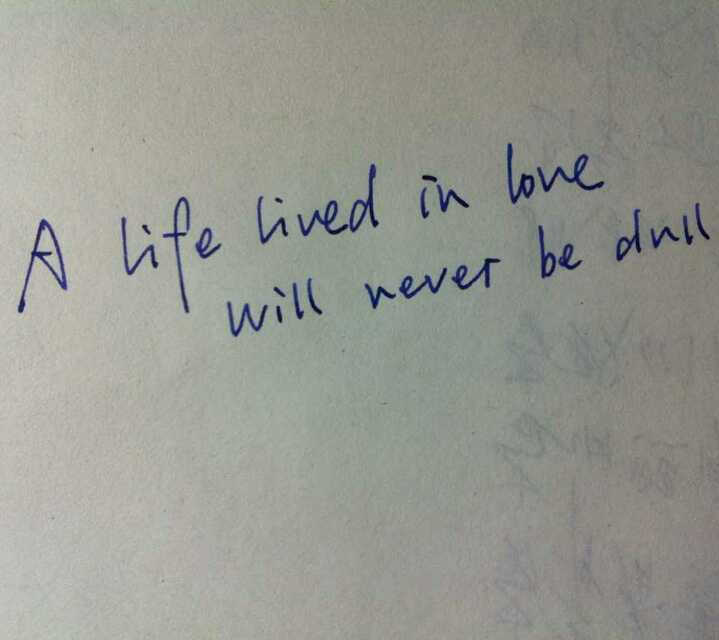 A life lived in love
will never be dull